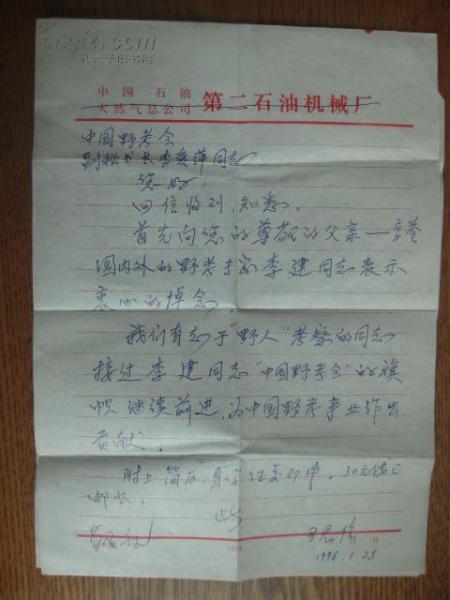 中国石油
天然气总公司 第二石油机械厂
中国野考会
副秘书长李爱萍同志
您好，
回信收到，知悉。
首先向您的尊敬的父亲—享誉
国内外的野考专家李建同志表示
衷心的悼念。
我们有志于"野人"考察的同志
接过李建同志"中国野考会"的旗
帜继续前进，为中国野考事业作出
贡献。
附上简历，身份证复印件。30元钱已
邮出。
1996.1.25